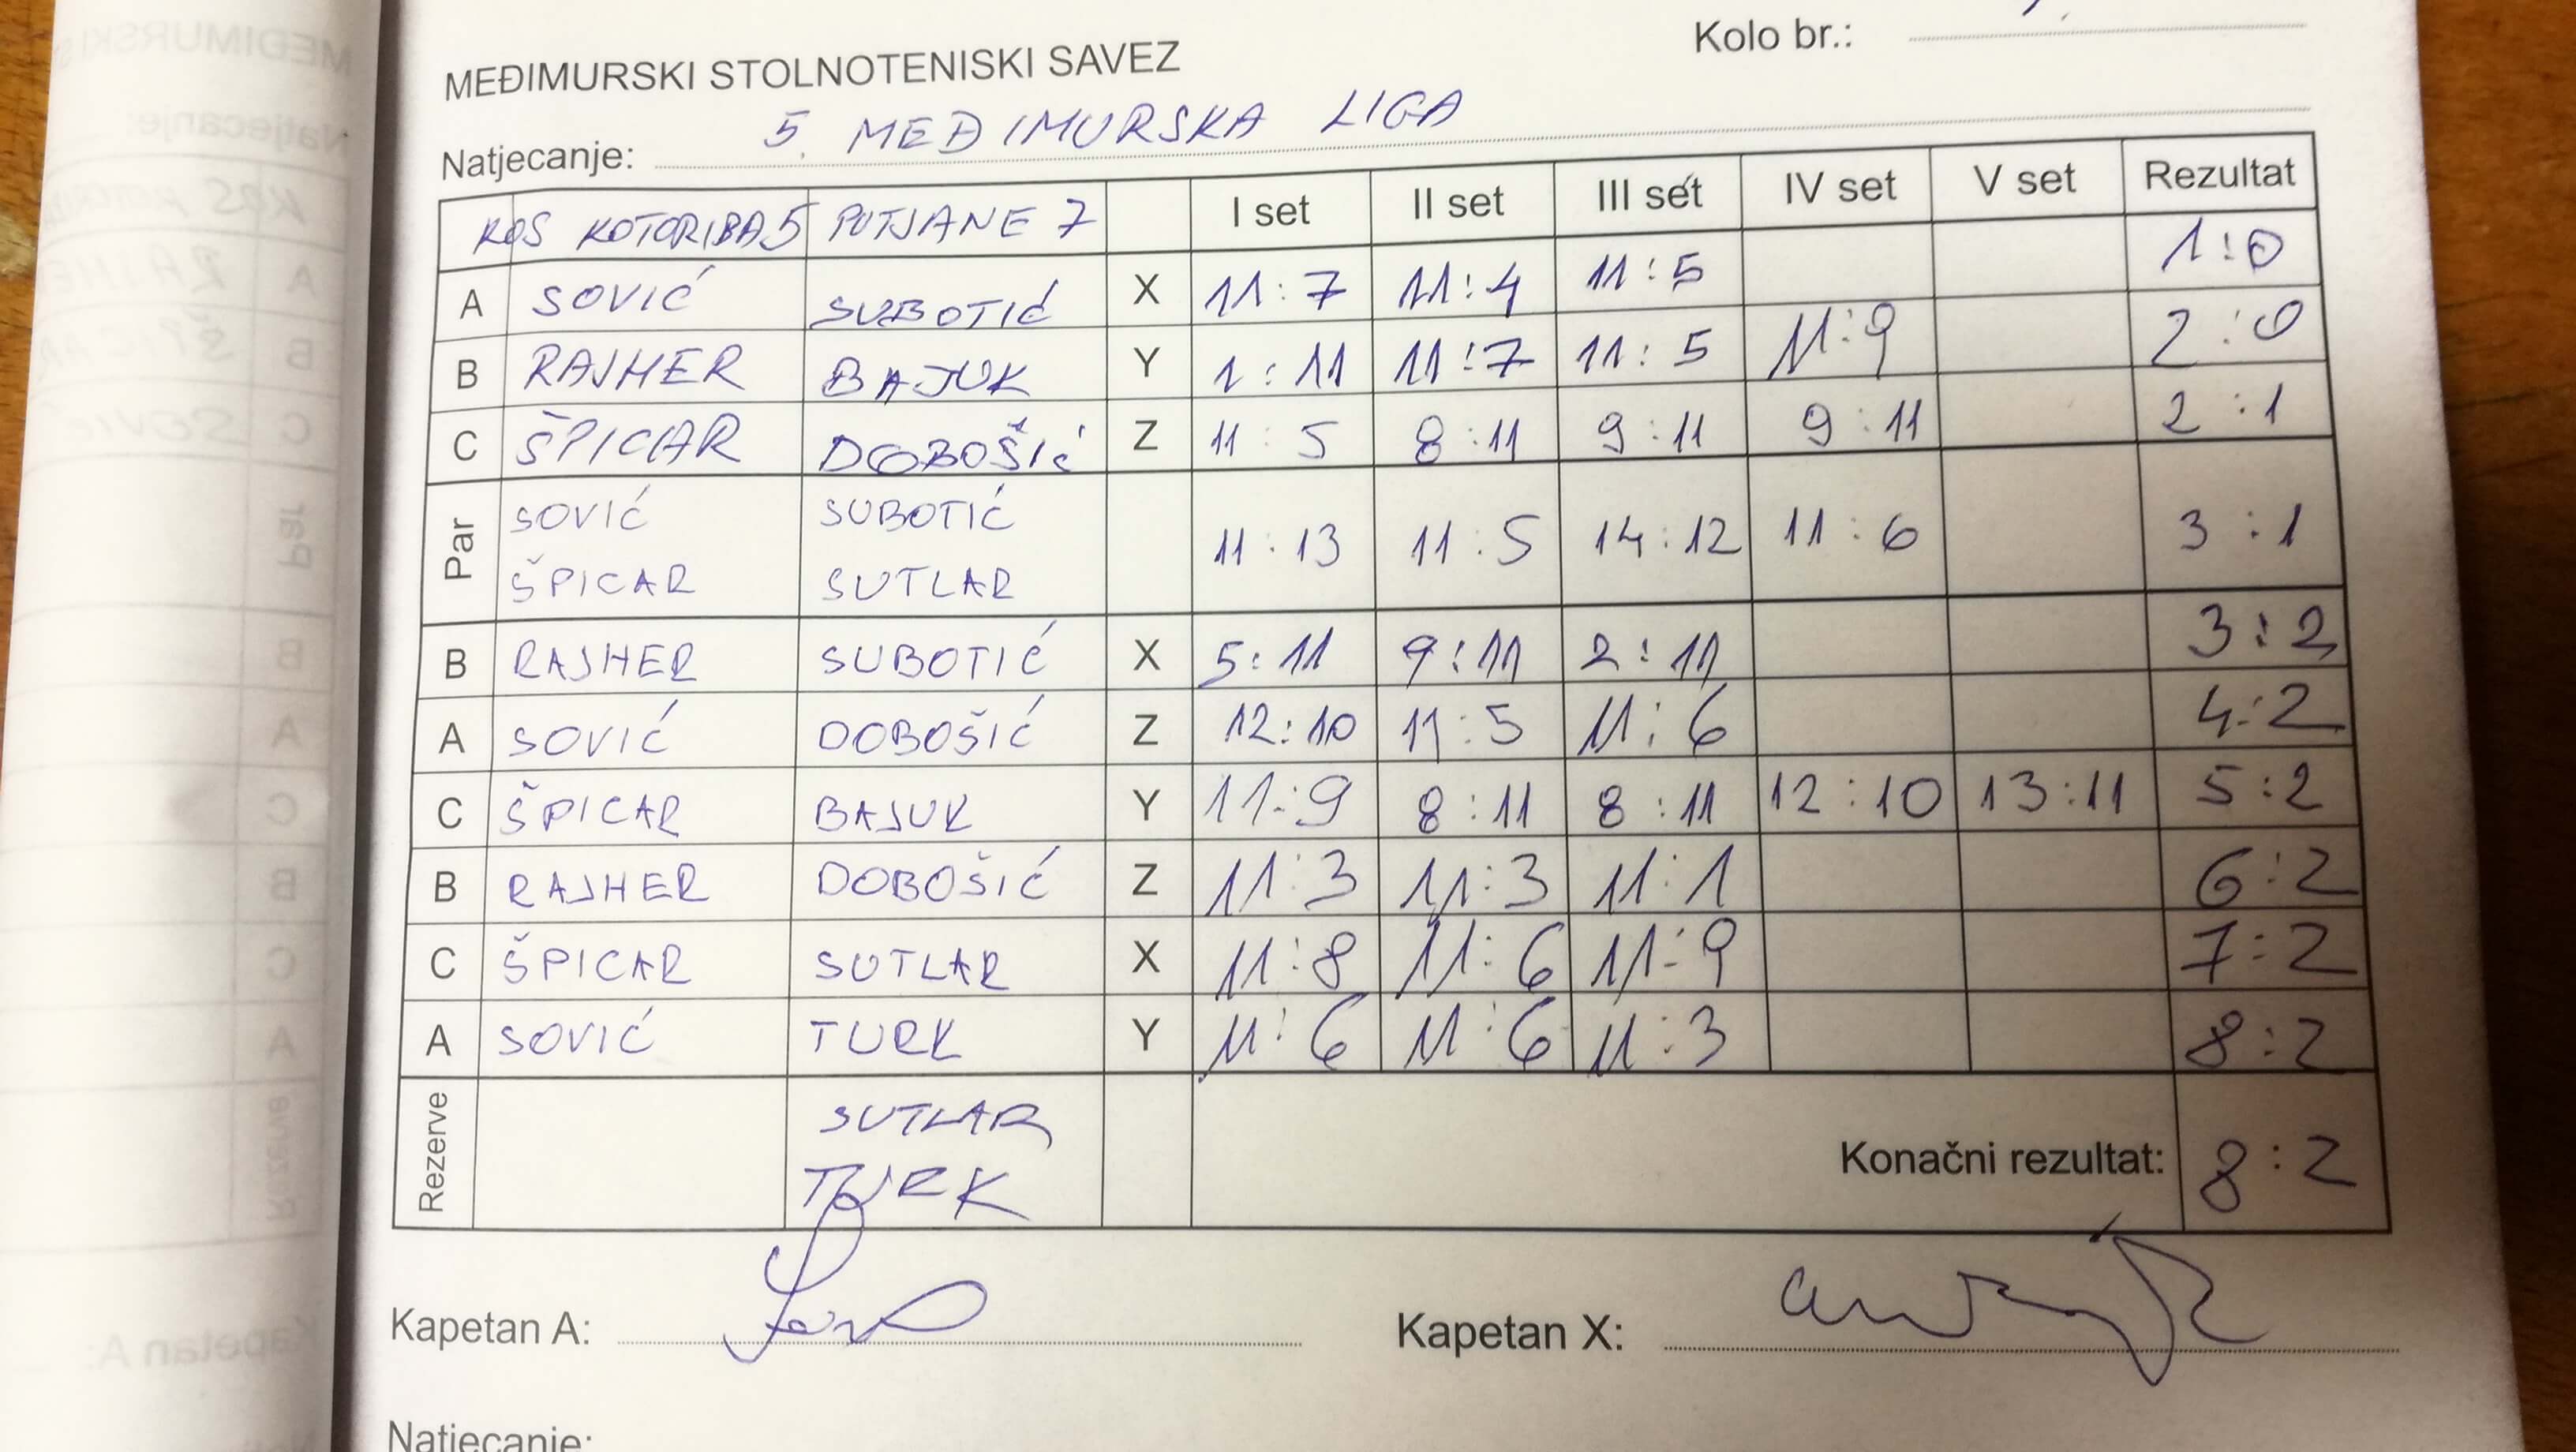 Kolo br.:
MEĐIMURSKI STOLNOTENISKI SAVEZ
Natjecanje: 5. MEĐIMURSKA LIGA
KOS KOTORIBA 5 PUTJANE 7 I set II set III set IV set V set Rezultat
A SOVIĆ SUBOTIĆ X 11:7 11:4 11:5 1:0
B RAJHER BAJUK Y 1:11 11:7 11:5 11:9 2:0
C ŠPICAR DOBOŠIĆ Z 11:5 8:11 9:11 9:11 2:1
Par SOVIĆ SUBOTIĆ
ŠPICAR SUTLAR 11:13 11:5 14:12 11:6 3:1
B RAJHER SUBOTIĆ X 5:11 9:11 2:11 3:2
A SOVIĆ DOBOŠIĆ Z 12:10 11:5 11:6 4:2
C ŠPICAR BAJUK Y 11:9 8:11 8:11 12:10 13:11 5:2
B RAJHER DOBOŠIĆ Z 11:3 11:3 11:1 6:2
C ŠPICAR SUTLAR X 11:8 11:6 11:9 7:2
A SOVIĆ TURK Y 11:6 11:6 11:3 8:2
Rezerve SUTLAR
TURK Konačni rezultat: 8:2
Kapetan A: Kapetan X:
Natjecanje: